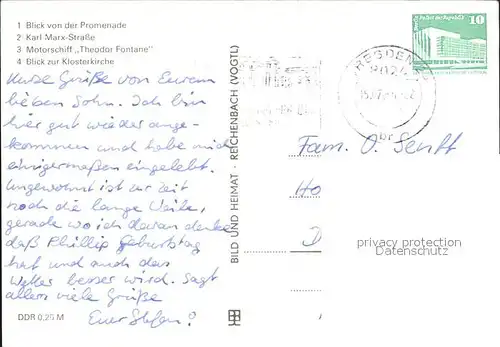 1 Blick von der Promenade
2 Karl Marx-Straße
3 Motorschiff „Theodor Fontane"
4 Blick zur Klosterkirche
Kurze Grüße von Eurem
lieben Sohn. Ich bin
hier gut wieder ange-
kommen und habe mich
einigermaßen eingelebt.
Ungewohnt ist zur Zeit
noch die lange Weile,
gerade wo ich daran denke
daß Phillip Geburtstag
hat und auch das
Wetter besser wird. Sagt
allem viele Grüße
Euer Stefan!
DDR 0,25 M
BILD UND HEIMAT · REICHENBACH (VOGTL)
10
DRESDEN
8024
br
Fam. O. Senff
Ho
D
privacy protection
Datenschutz